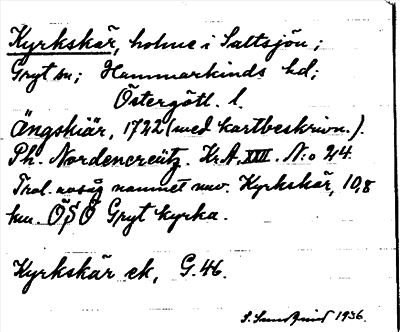 Kyrkskär, holme i Saltsjön;
Gryt sn; Hammarkinds hd;
Östergötl. l.
Ängskiär, 1722 (med kartbeskrivn.).
Ph. Nordencreütz. Kr.A. XVII. N:o 24.
Trol. avsåg namnet nuv. Kyrkskär, 10,8
km. ÖSÖ Gryt kyrka.
Kyrkskär ek, G.46.
S. 1936.